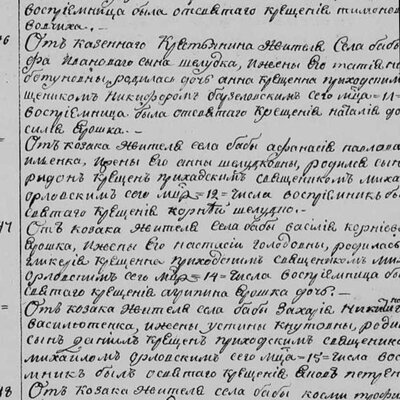 восприемница была отсвятаго крещенія тимофея
волика. —
6 Отъ казеннаго Крестьянина жителя Села бабы
фа Иванова сына шелудка, ижены Его татіяны
родилась дочь анна крещенна приходским
щеником Никифором сего мца = 11 =
восприемница была отсвятаго Крещенія наталія до
силѣя Ярошка. —
Отъ козака жителя села бабы афанасія павлова
ижены Его анны шелудковны, родился сынъ
крещен приходским священником миха
орловским сего мца = 12 = числа восприемник бы
святаго крещенія шелудко. —
17 От козака жителя Села бабы василія корніева
Ярошка, ижены Его настасіи голодовны, родилась
гликерія крещенна приходским священником ми
Орловским сего мца = 14 = числа восприемница бы
святаго крещенія Ярошка дочь. —
= Отъ козака жителя села бабы Захарія
василютенка, ижены устины кнутовны, роди
сынъ даніил крещен приходским священнико
михайлом орловским сего мца = 15 = числа вос
мник былъ отсвятаго крещенія петрен
18 Отъ козака жителя села бабы космы трофи